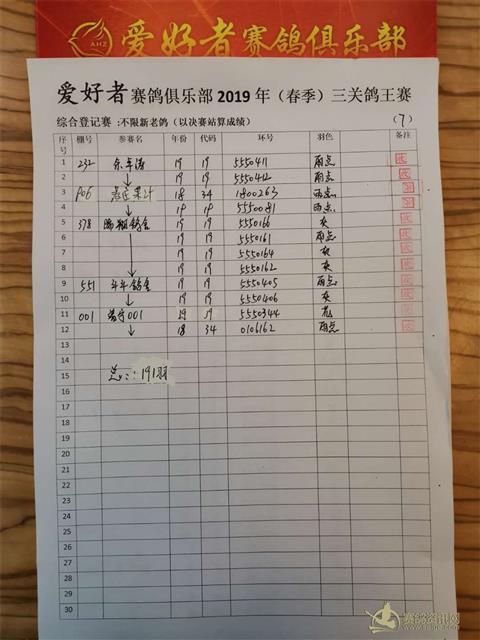 AHZ 爱好者赛鸽俱乐部
爱好者 赛鸽俱乐部 2019 年（春季）三关鸽王赛
综合登记赛：不限新老鸽（以决赛站算成绩） （7）
序号 棚号 参赛名 年份 代码 环号 羽色 备注
1 232 19 19 5550411 雨点
2 19 19 5550412 雨点
3 P06 18 34 1800263 雨点
4 19 19 5550081 雨点
5 378 19 19 5550166 灰
6 19 19 5550161 雨点
7 19 19 5550164 灰
8 19 19 5550162 灰
9 551 19 19 5550405 雨点
10 19 19 5550406 灰
11 001 001 19 19 5550344 花
12 18 34 0106162 雨点
13
14
15 总：191羽
16
17
18
19
20
21
22
23
24
25
26
27
28
29
30
赛鸽资讯网